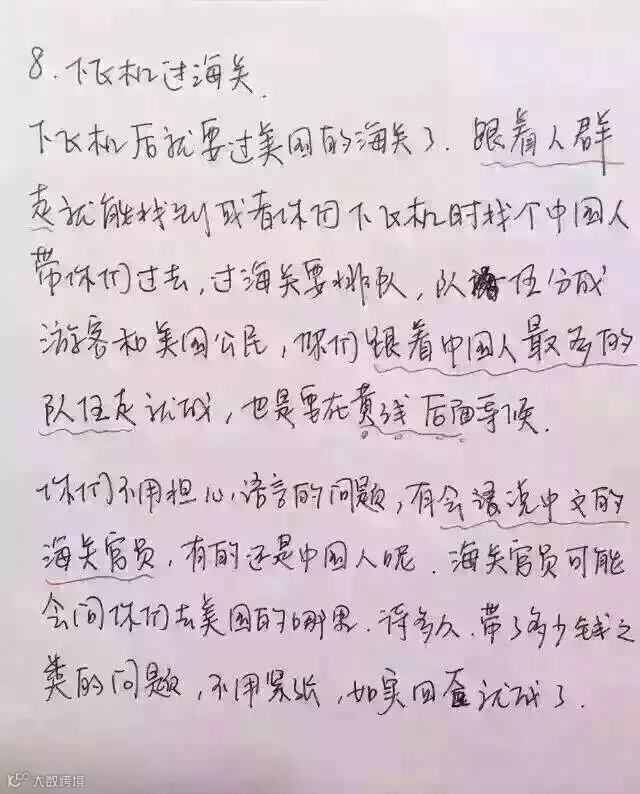 8. 下飞机过海关.
下飞机后就要过美国的海关了. 跟着人群
走就能找到或者你们下飞机时找个中国人
带你们过去, 过海关要排队, 队伍分成
游客和美国公民, 你们跟着中国人最多的
队伍走就成, 也是要在黄线后面等候.
你们不用担心语言的问题, 有会说中文的
海关官员, 有的还是中国人呢. 海关官员可能
会问你们去美国的哪里. 待多久. 带了多少钱之
类的问题, 不用紧张, 如实回答就成了.
大数跨境